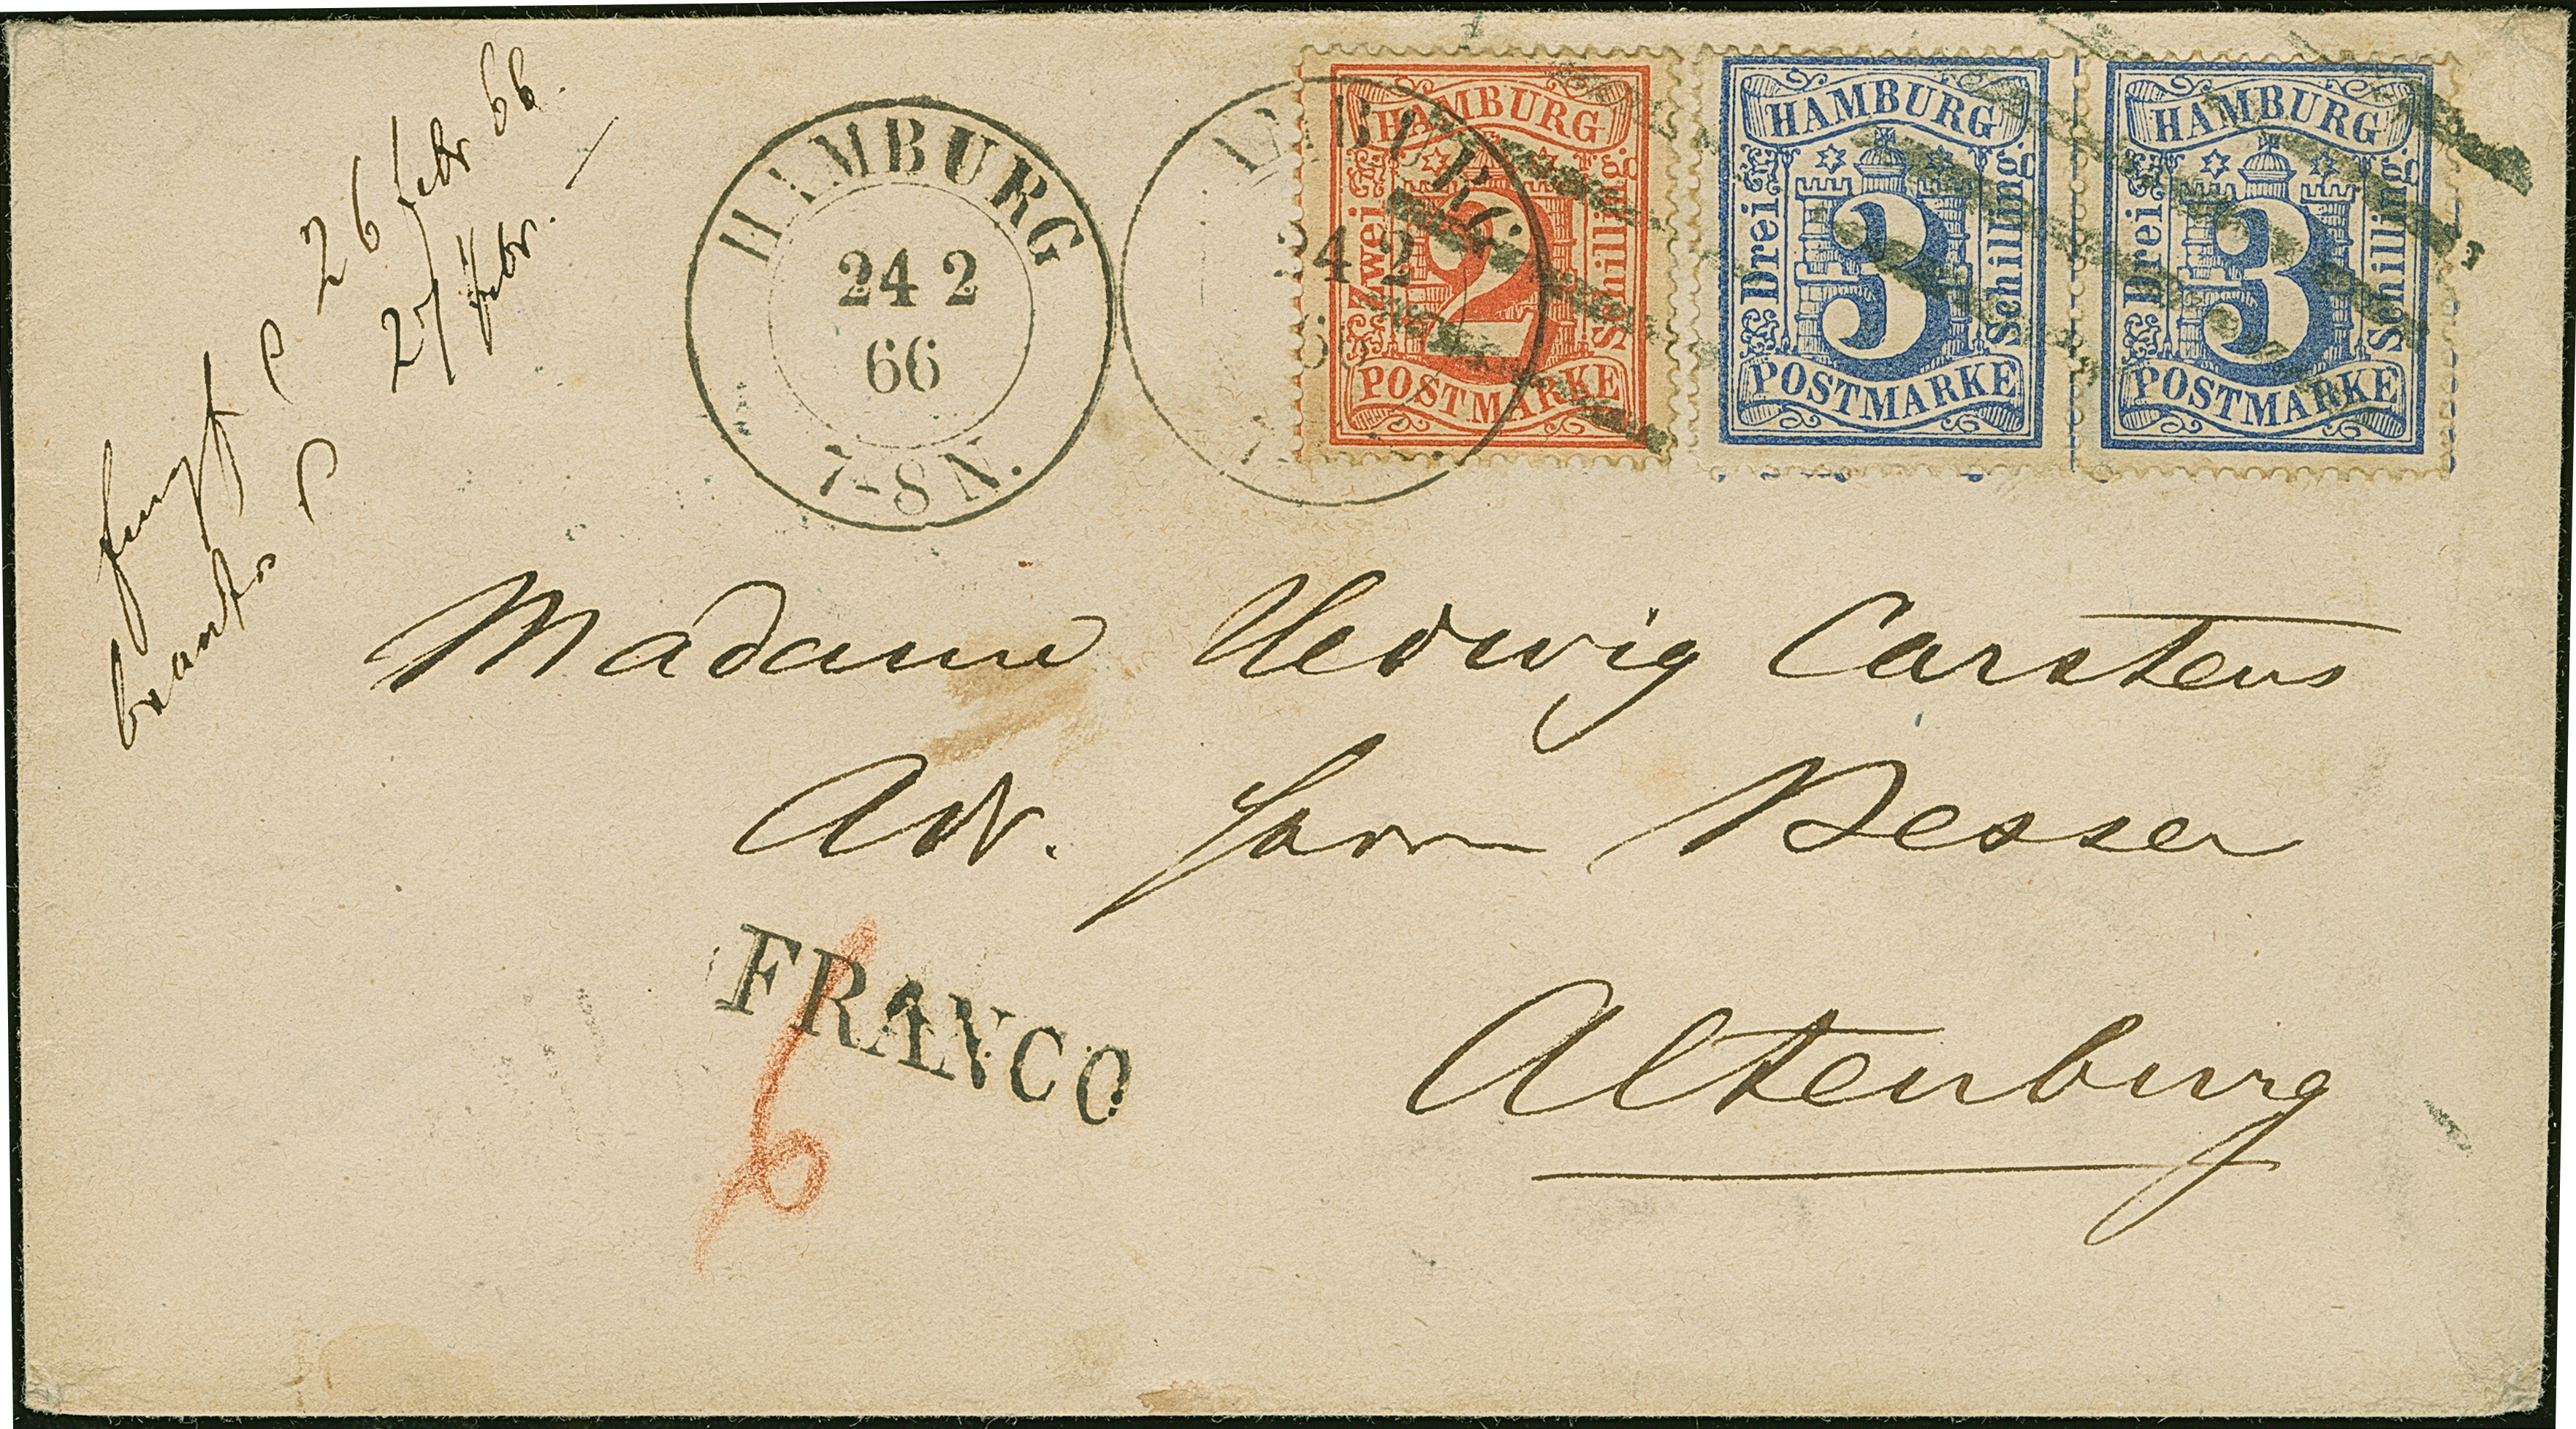 26 febr 66.
27 febr.
HAMBURG
24 2
66
7-8 N.
24 2
HAMBURG
Zwei
2
Schilling
POSTMARKE
HAMBURG
Drei
3
Schilling.
POSTMARKE
HAMBURG
Drei
3
Schilling.
POSTMARKE
Madame Hedwig Carstens
Adr. Herrn Besser
FRANCO
6
Altenburg